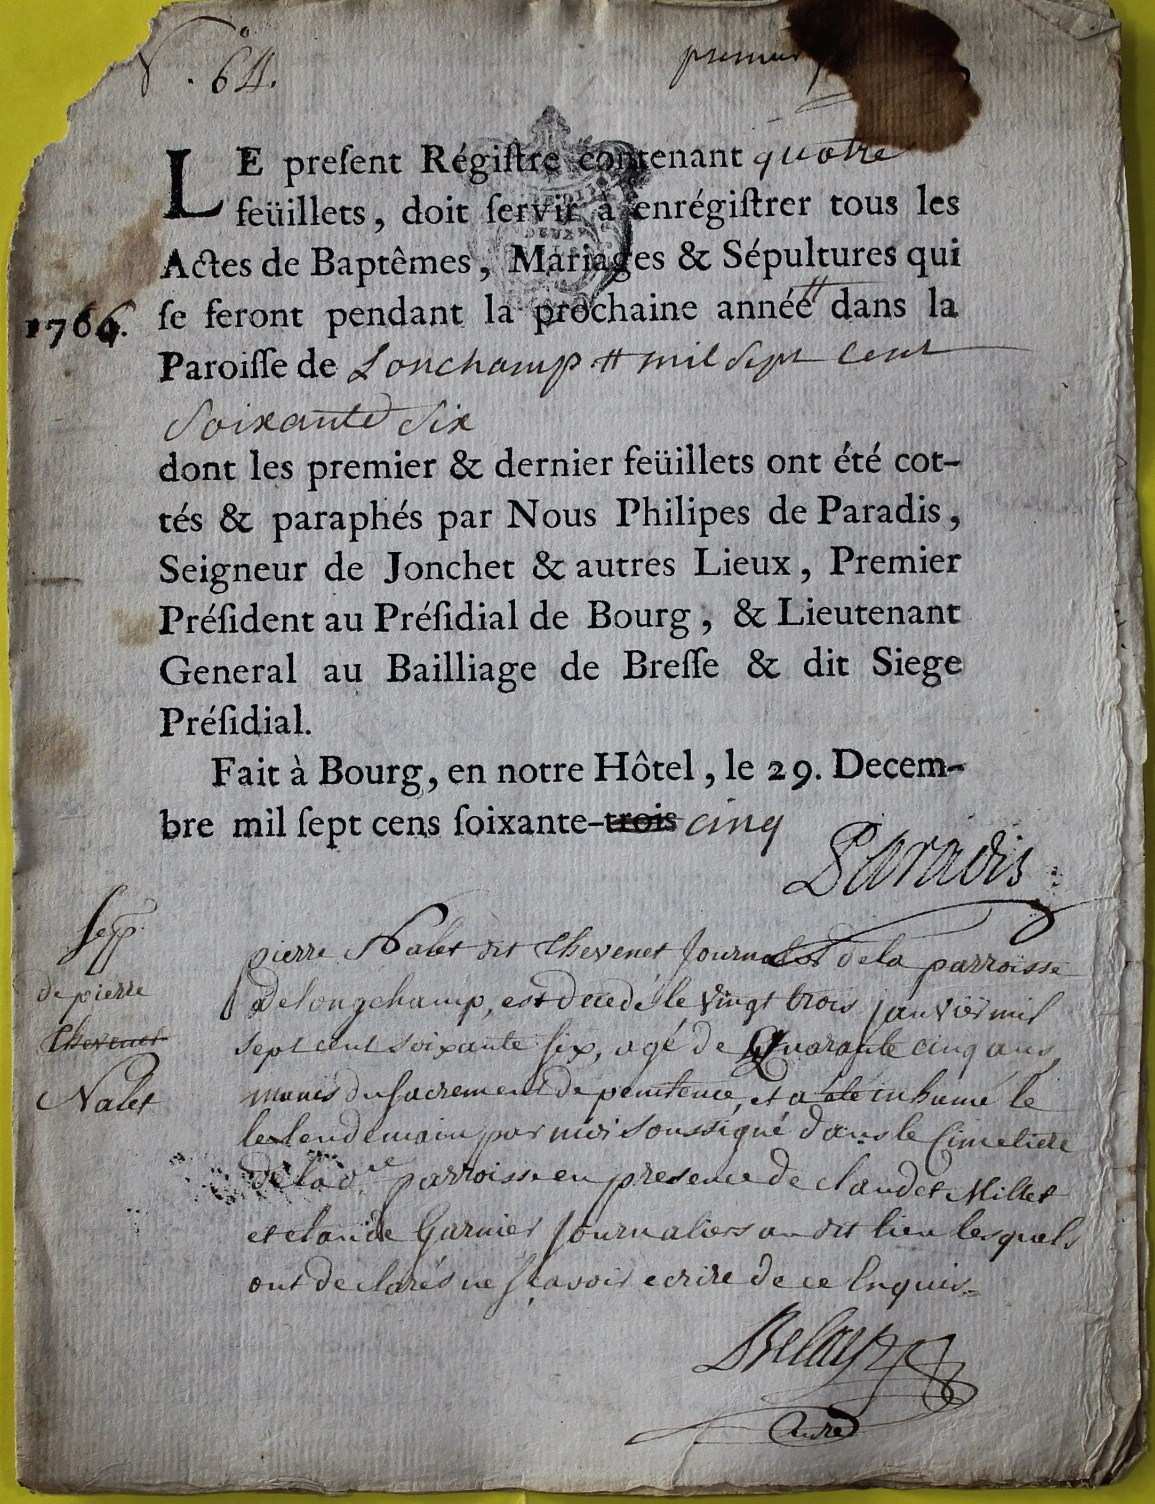 N°. 64.
premier
LE preſent Régiſtre contenant quatre
feüillets, doit ſervir à enrégiſtrer tous les
Actes de Baptêmes, Mariages & Sépultures qui
1766. ſe feront pendant la prochaine année # dans la
Paroiſſe de Lonchamp # mil sept cent
soixante six
dont les premier & dernier feüillets ont été cot-
tés & paraphés par Nous Philipes de Paradis,
Seigneur de Jonchet & autres Lieux, Premier
Préſident au Préſidial de Bourg, & Lieutenant
General au Bailliage de Breſſe & dit Siege
Préſidial.
Fait à Bourg, en notre Hôtel, le 29. Decem-
bre mil ſept cens ſoixante-trois cinq
Paradis
Sep.
de pierre
Chevenet
Nalet
pierre Nalet dit Chevenet Journal de la parroisse
de longchamp, est decedé le vingt trois janvier mil
sept cent soixante six, agé de Quarante cinq ans,
munis du sacrement de penitence, et a été inhumé le
le lendemain par moi soussigné dans le Cimetiere
de la d.te parroisse en presence de claude Millet
et claude Garnier Journaliers au dit lieu lesquels
ont declarés ne sçavoir ecrire de ce Enquis.
DEUX
Belay
Curé